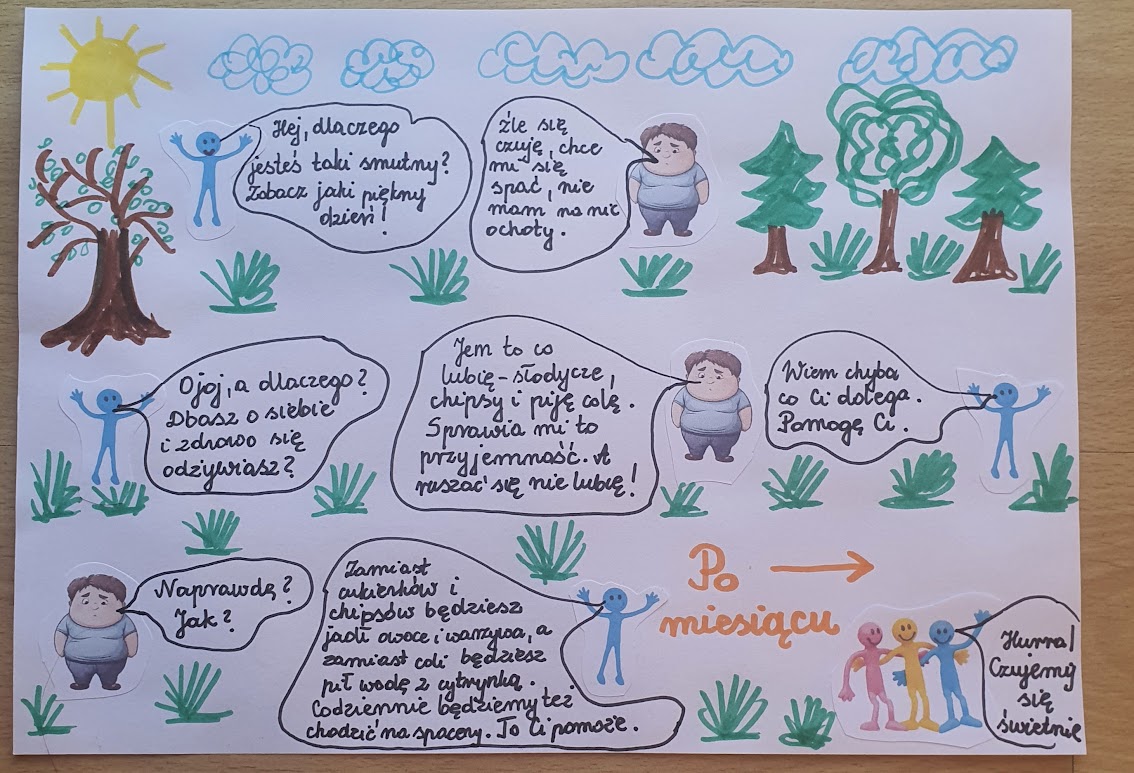 Hej, dlaczego
jesteś taki smutny?
Zobacz jaki piękny
dzień!
Źle się
czuję, chce
mi się
spać, nie
mam na nic
ochoty.
Ojoj, a dlaczego?
Dbasz o siebie
i zdrowo się
odżywiasz?
Jem to co
lubię - słodycze,
chipsy i piję colę.
Sprawia mi to
przyjemność. A
ruszać się nie lubię!
Wiem chyba
co Ci dolega.
Pomogę Ci.
Naprawdę?
Jak?
Zamiast
cukierków i
chipsów będziesz
jadł owoce i warzywa, a
zamiast coli będziesz
pił wodę z cytrynką.
Codziennie będziemy też
chodzić na spacery. To Ci pomoże.
Po
miesiącu
Hurra!
Czujemy
się
świetnie